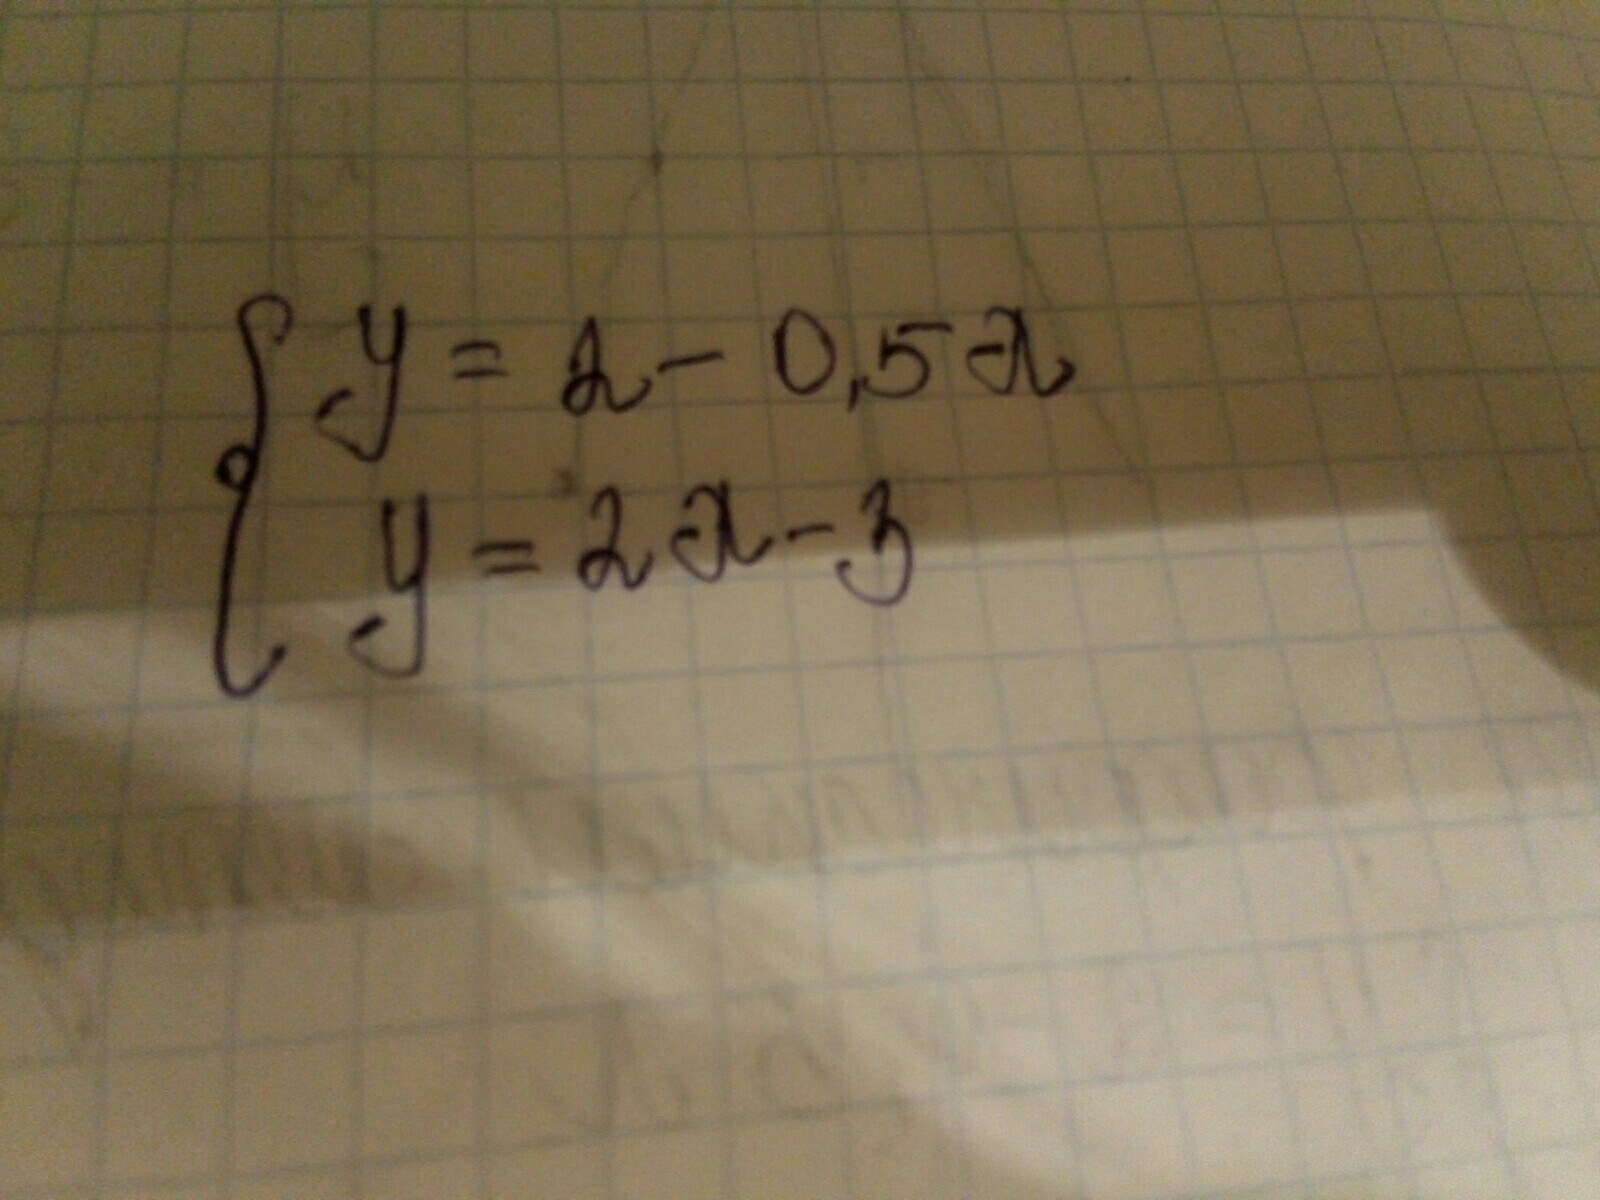 y = 2 - 0,5x
y = 2x - 3